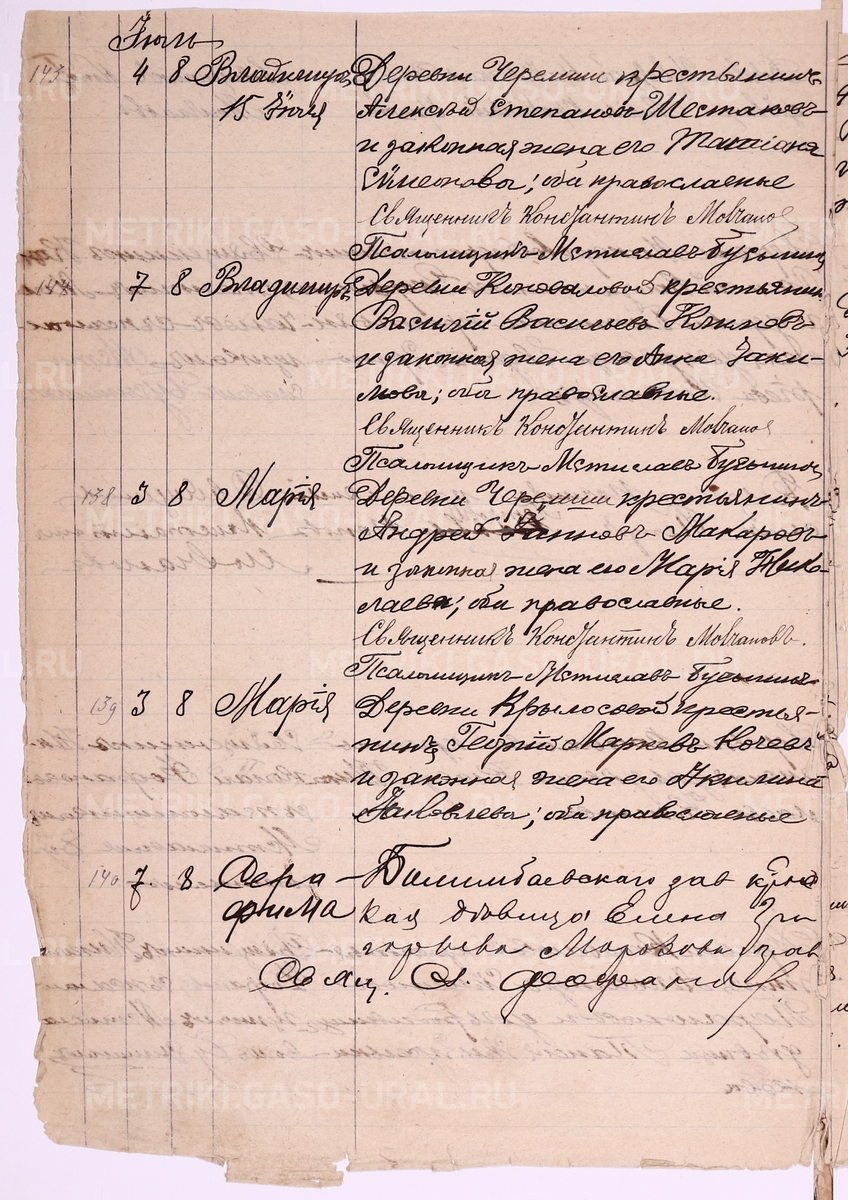 Июль
143 4 8 Владимиръ Деревни Черемши крестьянинъ
15 Июля Алексѣй Степановъ Шестаковъ
и законная жена его Татіана
Симеонова; оба православные
Священникъ Константинъ Мовчановъ
Псаломщикъ Мстиславъ
7 8 Владимиръ Деревни Коноваловой крестьянинъ
Василій Васильевъ Климовъ
и законная жена его Анна
оба православные.
Священникъ Константинъ Мовчановъ
Псаломщикъ Мстиславъ
138 3 8 Марія Деревни Черемши крестьянинъ
Андрей Макаровъ
и законная жена его Марія Нико-
лаева; оба православные.
Священникъ Константинъ Мовчановъ.
Псаломщикъ Мстиславъ
139 3 8 Марія Деревни Крылосовой крестья-
нинъ Георгій Маркевъ Кочевъ
и законная жена его Акилина
Яковлева; оба православные
140 7 8 Сера- Билимбаевскаго зав
фима кая дѣвица Елена Гри
горьева Морокова прав
Свящ. Ѳ.
METRIKI.GASO-URAL.RU